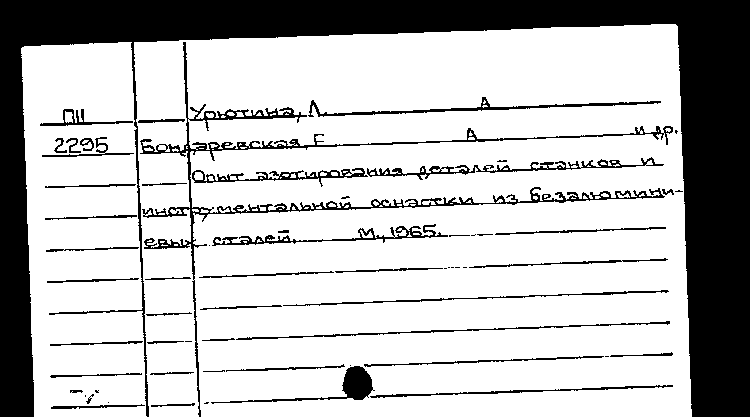 П11 Урютина, Л. А
2295 Бондаревская, Г А и др.
Опыт азотирования деталей станков и
инструментальной оснастки из безалюмини-
евых сталей. М., 1965.